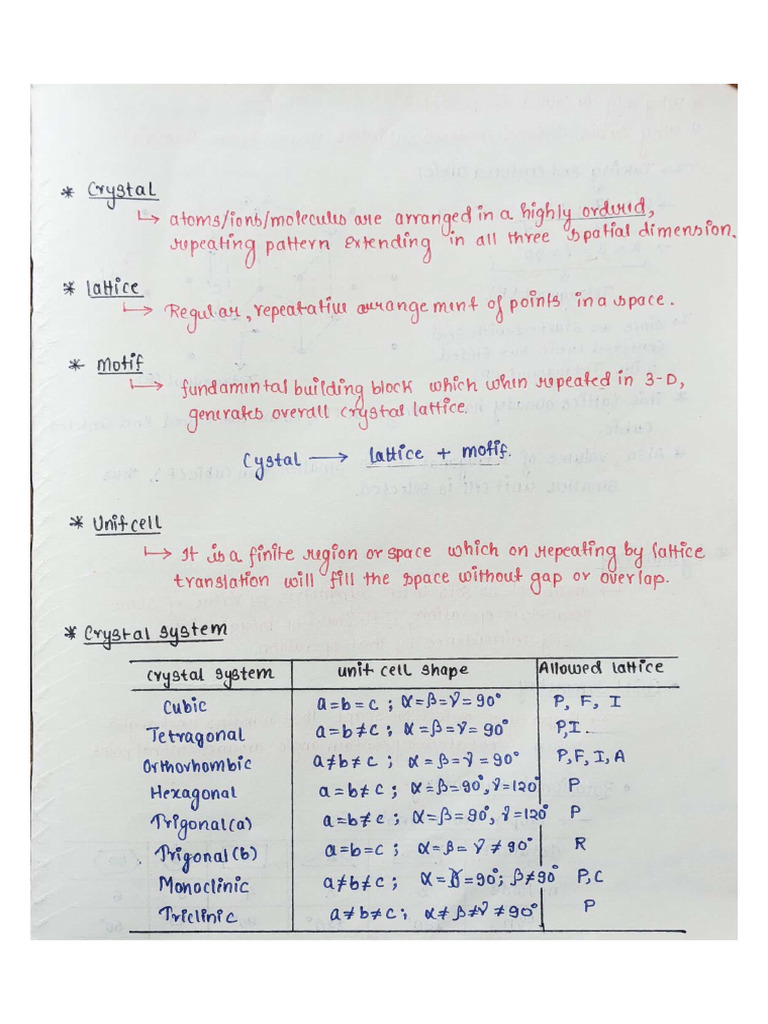 * Crystal
↳ atoms/ions/molecules are arranged in a highly ordered,
repeating pattern extending in all three spatial dimension.
* lattice
↳ Regular, repeatative arrangement of points in a space.
* Motif
↳ fundamental building block which when repeated in 3-D,
generates overall crystal lattice.
Cystal → lattice + motif.
* Unit cell
↳ It is a finite region or space which on repeating by lattice
translation will fill the space without gap or overlap.
* Crystal system
Crystal system unit cell shape Allowed lattice
Cubic a=b=c ; α=β=γ=90° P, F, I
Tetragonal a=b≠c ; α=β=γ=90° P,I.
Orthorhombic a≠b≠c ; α=β=γ=90° P,F,I,A
Hexagonal a=b≠c ; α=β=90°, γ=120° P
Trigonal(a) a=b≠c ; α=β=90°, γ=120° P
Trigonal(b) a=b=c ; α=β=γ≠90° R
Monoclinic a≠b≠c ; α=γ=90°; β≠90° P,C
Triclinic a≠b≠c ; α≠β≠γ≠90° P